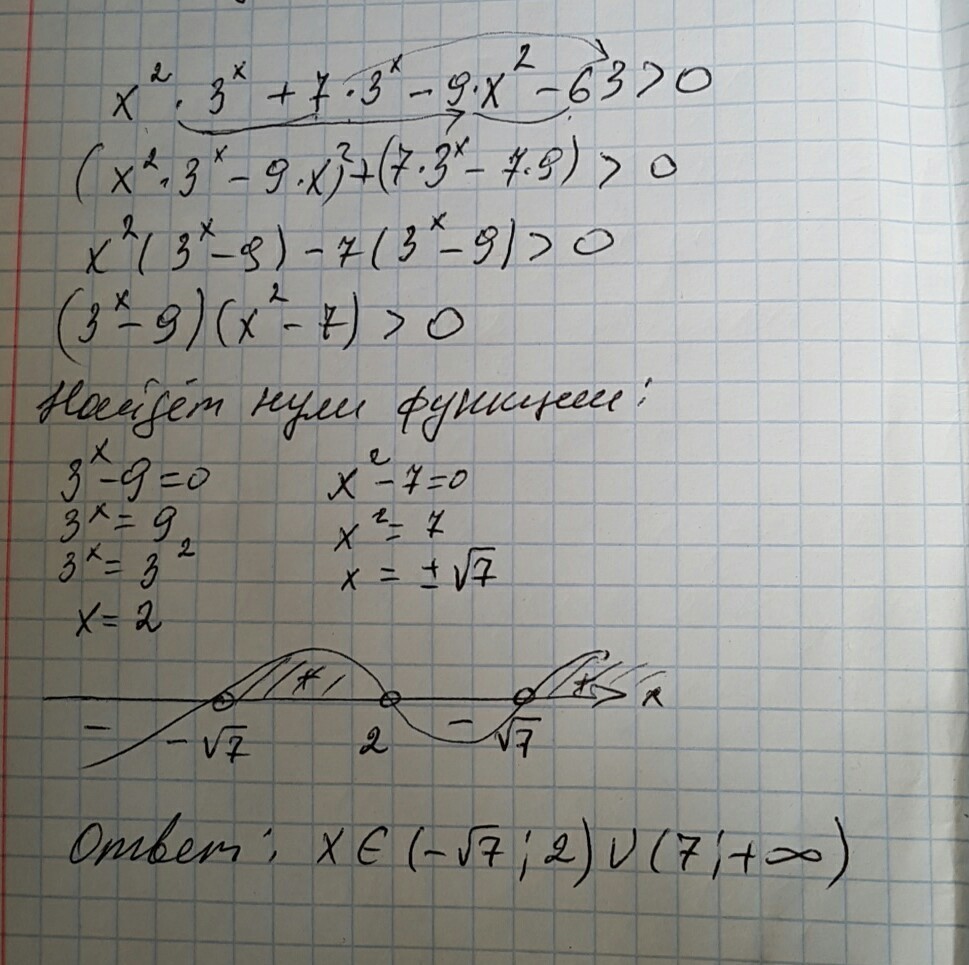 x² · 3ˣ + 7 · 3ˣ - 9 · x² - 63 > 0
(x² · 3ˣ - 9 · x)² + (7 · 3ˣ - 7 · 9) > 0
x² (3ˣ - 9) - 7 (3ˣ - 9) > 0
(3ˣ - 9) (x² - 7) > 0
Найдём нули функции:
3ˣ - 9 = 0 x² - 7 = 0
3ˣ = 9 x² = 7
3ˣ = 3² x = ± √7
x = 2
+ + x
- -√7 2 - √7
Ответ: x ∈ (-√7; 2) ∪ (7; +∞)